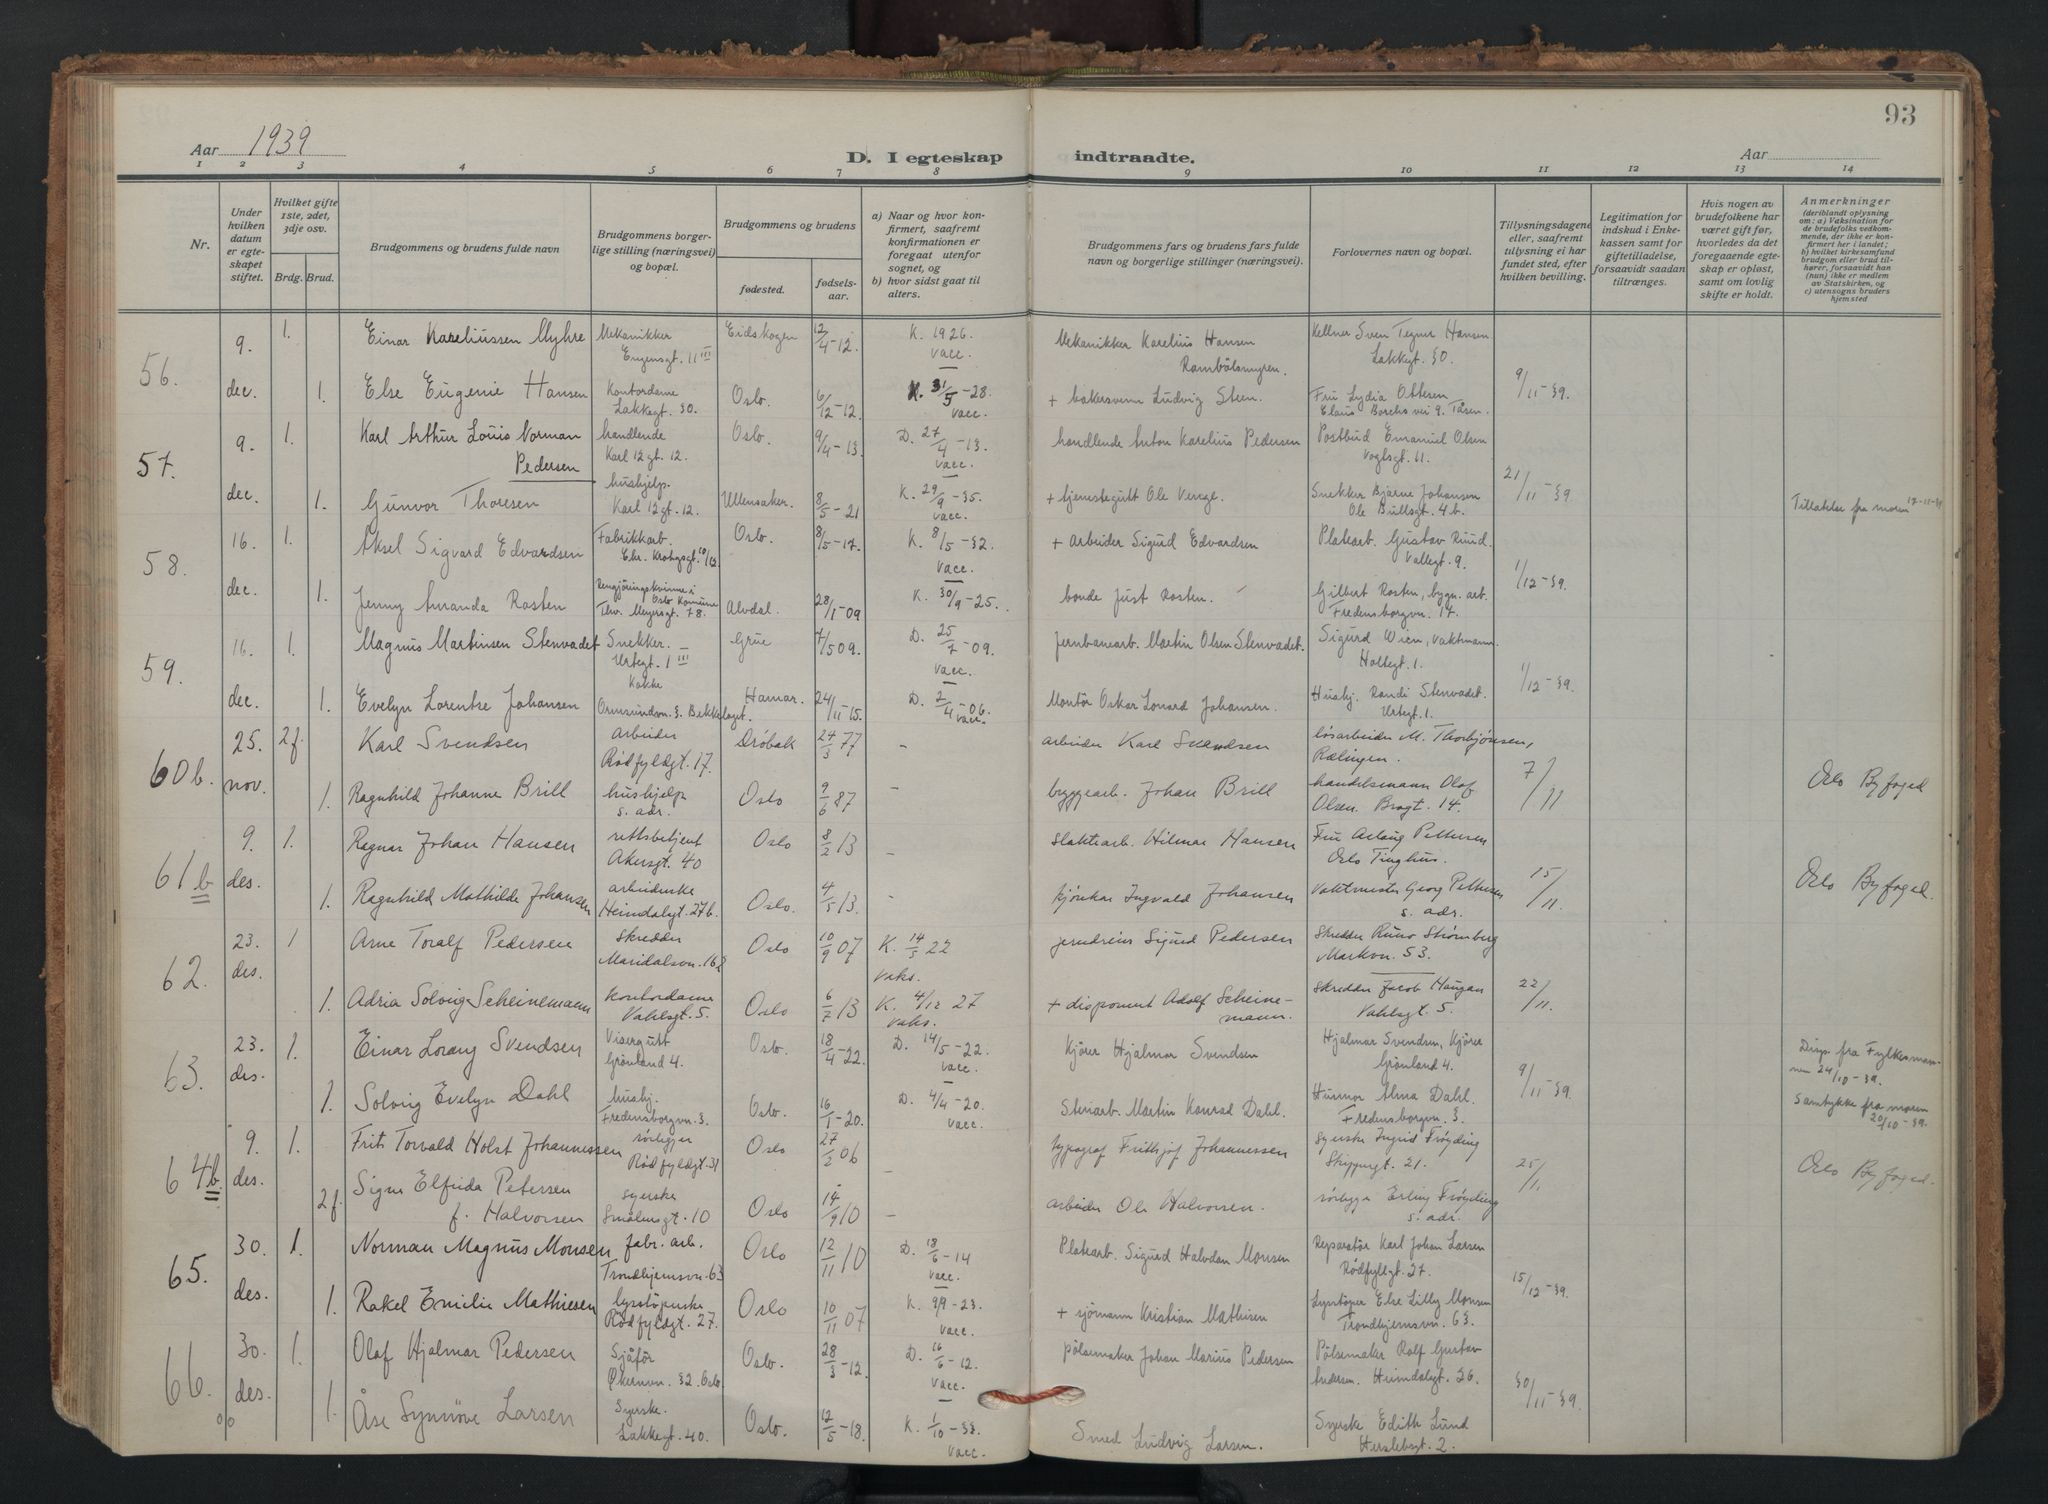 93
Aar 1939
D. I egteskap indtraadte.
Aar
1 2 3 4 5 6 7 8 9 10 11 12 13 14
Nr.
Under hvilken datum er egteskapet stiftet.
Hvilket gifte 1ste, 2det, 3dje osv.
Brdg. Brud.
Brudgommens og brudens fulde navn
Brudgommens borgerlige stilling (næringsvei) og bopæl.
Brudgommens og brudens
fødested.
fødselsaar.
a) Naar og hvor konfirmert, saafremt konfirmationen er foregaat utenfor sognet, og
b) hvor sidst gaat til alters.
Brudgommens fars og brudens fars fulde navn og borgerlige stillinger (næringsvei).
Forlovernes navn og bopæl.
Tillysningsdagene eller, saafremt tillysning ei har fundet sted, efter hvilken bevilling.
Legitimation for indskud i Enkekassen samt for giftetilladelse, forsaavidt saadan tiltrænges.
Hvis nogen av brudefolkene har været gift før, hvorledes da det foregaaende egteskap er opløst, samt om lovlig skifte er holdt.
Anmerkninger (deriblandt oplysning om: a) Vaksination for de brudefolks vedkommende, der ikke er konfirmert her i landet; b) hvilket kirkesamfund brudgom eller brud tilhører, forsaavidt han (hun) ikke er medlem av Statskirken, og c) utensogns bruders hjemsted
56. 9. dec. 1. Einar Kareliussen Myhre Mekanikker Eugensgt. 11 III Eidskogen 12/4-12. K. 1926. vacc. Mekanikker Karelius Hansen Kellner Sven Tegner Hansen Lakkegt. 30. 9/11-39.
1. Else Eugenie Hansen Kontordame Lakkegt. 30. Oslo. 6/12-12. K. 31/5-28. vacc. + bakersvenn Ludvig Steen Fru Lydia Ottesen Claus Borchs vei 9. Tåsen.
57. 9. dec. 1. Karl Arthur Louis Norman Pedersen handlende Karl 12 gt. 12. Oslo. 9/4-13. D. 27/4-13. vacc. handlende Anton Karelius Pedersen Postbud Emanuel Olsen Voglsgt. 11. 21/11-39.
1. Gunvor Thoresen hushjelp. Karl 12 gt. 12. Ullensaker. 8/5-21 K. 29/9-35. vacc. + tjenestegutt Ole Venge. Snekker Bjarne Johansen Ole Bullsgt. 4b. Tillatelse fra moren 17-11-39
58. 16. dec. 1. Aksel Sigvard Edvardsen Fabrikkarb. Chr. Krohgsgt. Oslo. 8/5-17. K. 8/5-32. vacc. + arbeider Sigurd Edvardsen Platearb. Gustav Ruud. Vallegt. 9. 1/12-39.
1. Jenny Amanda Rosten Rengjøringskvinne i Oslo Komune Thv. Meyersgt. 78. Alvdal. 28/1-09 K. 30/9-25. bonde Just Rosten. Gilbert Rosten, bygn. arb. Fredensborgvn. 17.
59. 16. dec. 1. Magnus Martinsen Stenvadet Snekker. Urtegt. 1 III Grue 7/5 09. D. 25/7-09. vacc. Jernbanearb. Martin Olsen Stenvadet. Sigurd Wien, vaktmann. Holtegt. 1. 1/12-39.
1. Evelyn Lorentse Johansen Kokke Ormsundvn. 3. Bekkelaget. Hamar. 24/11-15. D. 2/4-06. vacc. Montør Oskar Lonard Johansen. Hushj. Randi Stenvadet. Urtegt. 1.
60b. 25. nov. 2f. Karl Svendsen arbeider Rødfyldgt. 17. Drøbak 24/3 77 - arbeider Karl Svendsen løsarbeider M. Thorbjønsen, Rælingen. 7/11 Oslo Byfoged
1. Ragnhild Johanne Brill hushjelp s. adr. Oslo 9/6 87 - byggearb. Johan Brill handelsmann Olaf Olsen. Brogt. 14.
61b 9. des. 1. Ragnar Johan Hansen rettsbetjent Akersgt. 40 Oslo 8/2 13 - slakterarb. Hilmar Hansen Fru Aslaug Pettersen Oslo Tinghus. 15/11. Oslo Byfoged.
1. Ragnhild Mathilde Johansen arbeiderske Heimdalsgt. 27b. Oslo. 4/5 13. - kjørekar Ingvald Johansen Vaktmester Georg Pettersen s. adr.
62. 23. des. 1 Arne Toralf Pedersen skredder Maridalsvn. 162 Oslo 10/9 07 K. 14/5 22 vaks. jerndreier Sigurd Pedersen skredder Runo Strømberg Markvn. 53. 22/11.
1. Adria Solvig Scheinemann kontordame Vahlsgt. 5. Oslo 6/7 13 K. 4/12 27 vaks. + disponent Adolf Scheinemann. skredder Jacob Haugan Vahlsgt. 5.
63. 23. des. 1. Einar Lorang Svendsen Visergutt Grønland 4. Oslo. 18/4-22. D. 14/5-22. vacc. Kjører Hjalmar Svendsen Hjalmar Svendsen, Kjører Grønland 4. 9/11-39. Disp. fra Fylkesmannen 24/10-39.
1. Solvig Evelyn Dahl hushj. Fredensborgvn. 3. Oslo. 16/1-20. D. 4/4-20. vacc. Stenarb. Martin Konrad Dahl. Hunnor Alma Dahl. Fredensborgvn. 3. Samtykke fra moren 20/10-39.
64b. 9. des. 1. Frits Torvald Holst Johannessen rørlegger Rødfyldgt. 31 Oslo 27/2 06 - typograf Frithjof Johannessen syerske Ingrid Frøyding Skippergt. 21. 25/11. Oslo Byfoged.
2f. Signe Elfrida Petersen f. Halvorsen syerske Smålensgt. 10 Oslo 14/9 10 - arbeider Ole Halvorsen. rørlegger Erling Frøyding s. adr.
65. 30. des. 1. Norman Magnus Monsen fabr. arb. Trondhjemsvn. 63 Oslo 12/11 10 D. 18/6-14 vacc. Platearb. Sigurd Halvdan Monsen Reparatør Karl Johan Larsen Rødfyllgt. 27. 15/12-39.
1. Rakel Emilie Mathiesen lysstøperske Rødfyldgt. 27. Oslo 10/11 07 K. 9/9-23. vacc. + sjømann Kristian Mathisen Lysstøper Else Lilly Monsen Trondhjemsvn. 63.
66. 30. des. 1. Olaf Hjalmar Pedersen Sjåfør Økernvn. 32. Oslo Oslo. 28/3-12. D. 16/6-12. vacc. pølsemaker Johan Marius Pedersen Pølsemaker Rolf Gustav Andersen. Heimdalsgt. 26. 30/11-39.
1. Åse Synnøve Larsen Syerske. Lakkegt. 40. Oslo. 12/5-18. K. 1/10-33. vacc. Smed Ludvig Larsen. Syerske Edith Lund Herslebsgt. 2.